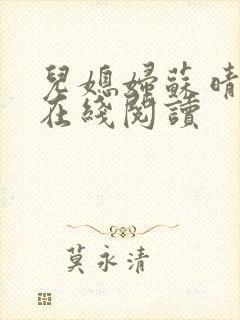 兒媳婦蘇晴
在綫閱讀
莫永清